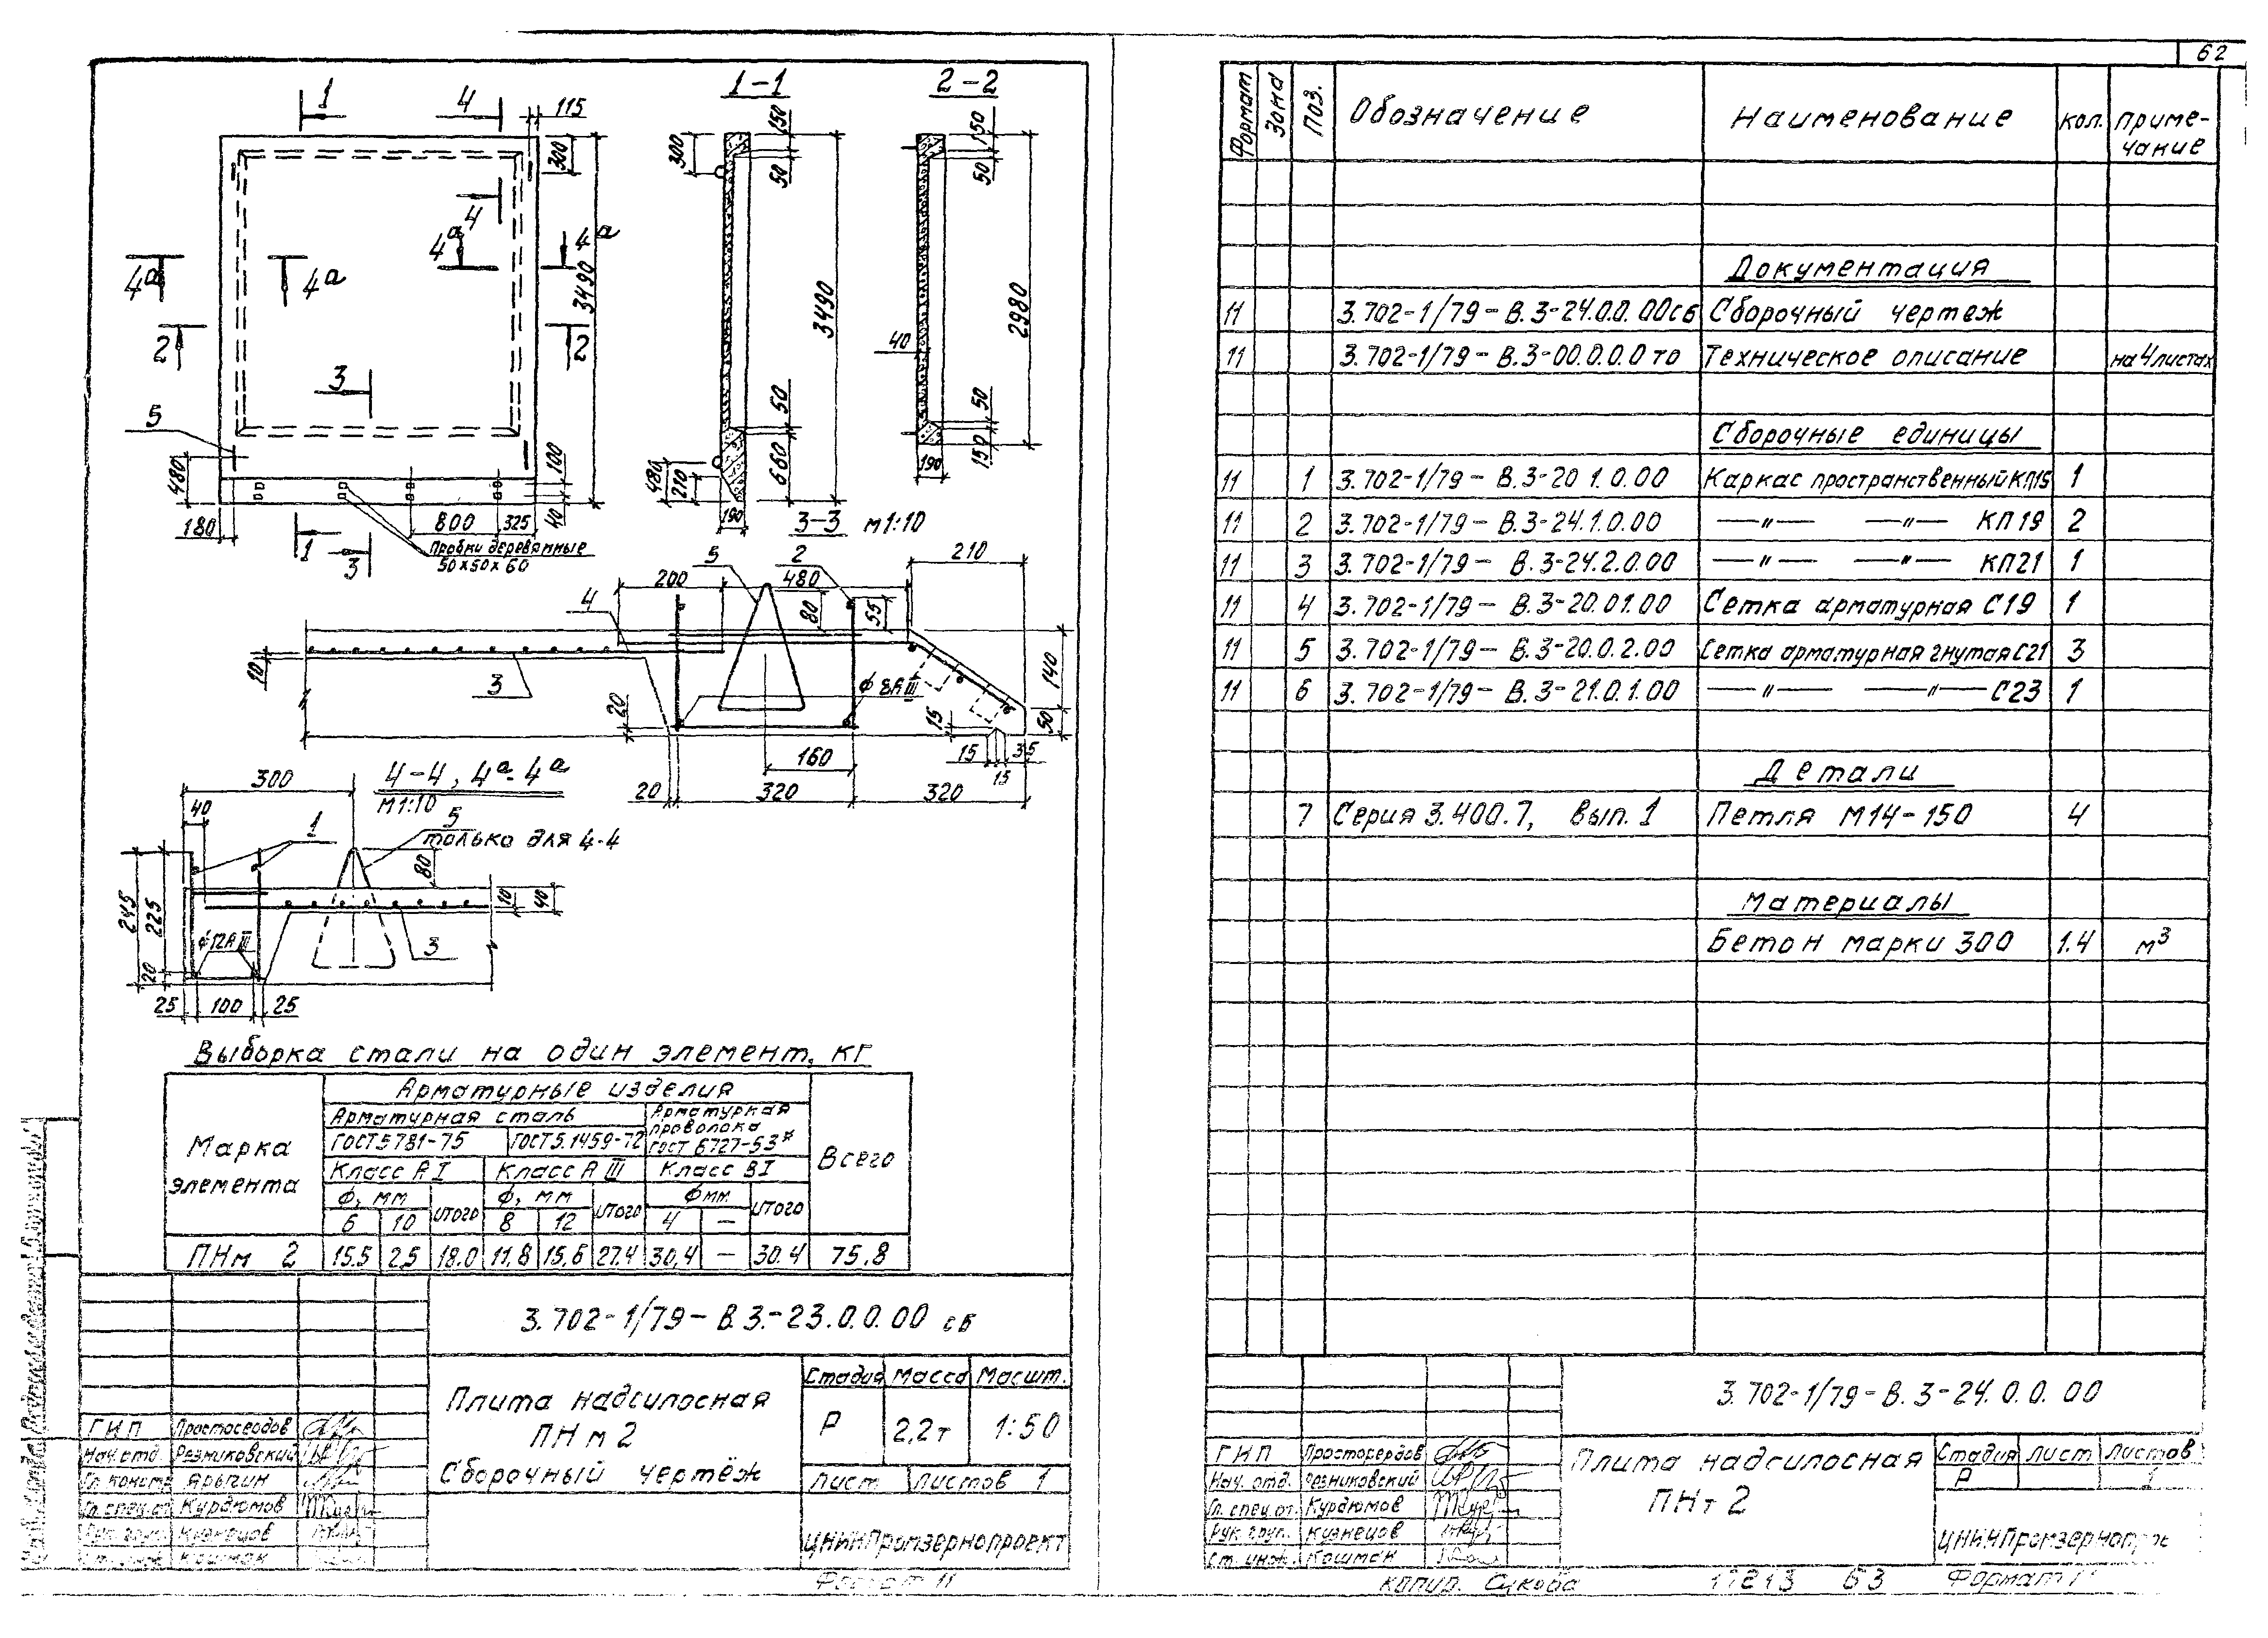 62
1
4
115
300
3490
4
4а
4а
4а
4а
2
2
3
5
480
100
40
180
800
325
1
3
Пробки деревянные
50х50х60
1-1
300
150
50
3490
50
660
480
210
190
2-2
150
50
2980
40
50
150
190
3-3 м1:10
5
2
210
200
480
80
55
4
10
3
ф8АIII
20
15
140
50
15
35
15
160
20
320
320
4-4, 4а-4а
М1:10
300
40
1
5
только для 4-4
80
245
225
20
ф12АIII
10
40
3
25
100
25
Выборка стали на один элемент, кг
Марка элемента
Арматурные изделия
Всего
Арматурная сталь
Арматурная проволока
ГОСТ 5781-75
ГОСТ 5.1459-72
ГОСТ 6727-53*
Класс АI
Класс АIII
Класс ВI
ф, мм
итого
ф, мм
итого
ф мм.
итого
6 10 8 12 4 —
ПНм 2 15.5 2,5 18.0 11,8 15,6 27.4 30,4 — 30.4 75,8
3.702-1/79-В.3.-23.0.0.00 сб
Плита надсилосная
ПНм2
Сборочный чертёж
Стадия Масса Масшт.
Р 2,2т 1:50
Лист Листов 1
ЦНИИПромзернопроект
ГИП Простосердов
Нач. отд. Резниковский
Гл. констр Ярыгин
Гл. спец. от. Курдюмов
Рук. груп. Кузнецов
Ст. инж. Кошман
Формат 11
Формат Зона Поз. Обозначение Наименование Кол. Примечание
Документация
11 3.702-1/79-В.3-24.0.0.00сб Сборочный чертеж
11 3.702-1/79-В.3-00.0.0.0то Техническое описание на 4 листах
Сборочные единицы
11 1 3.702-1/79-В.3-20 1.0.00 Каркас пространственный КП15 1
11 2 3.702-1/79-В.3-24.1.0.00 —"— —"— КП19 2
11 3 3.702-1/79-В.3-24.2.0.00 —"— —"— КП21 1
11 4 3.702-1/79-В.3-20.01.00 Сетка арматурная С19 1
11 5 3.702-1/79-В.3-20.0.2.00 Сетка арматурная гнутая С21 3
11 6 3.702-1/79-В.3-21.0.1.00 —"— —"— С23 1
Детали
7 Серия 3.400.7, Вып. 1 Петля М14-150 4
Материалы
Бетон марки 300 1.4 м³
3.702-1/79-В.3-24.0.0.00
Плита надсилосная
ПНт 2
Стадия Лист Листов
Р 1
ЦНИИПромзернопрое
ГИП Простосердов
Нач. отд. Резниковский
Гл. спец. от. Курдюмов
Рук. груп. Кузнецов
Ст. инж. Кошман
копир. Сукоба 63 Формат